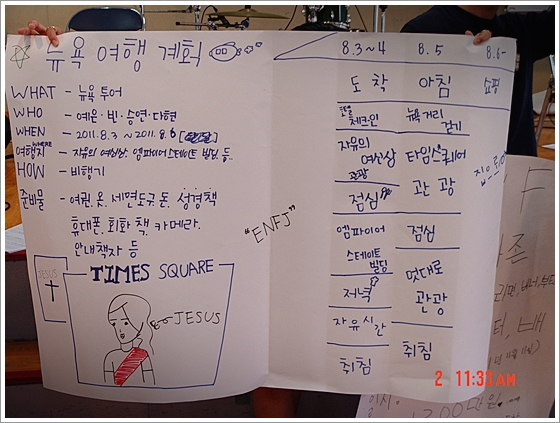 뉴욕 여행 계획
WHAT - 뉴욕 투어
WHO - 예은·빈·승연·다현
WHEN - 2011.8.3 ~ 2011.8.6
여행지 - 자유의 여신상, 엠파이어스테이트 빌딩 등
WHERE
HOW - 비행기
준비물 - 여권, 옷, 세면도구, 돈, 성경책
휴대폰, 회화 책, 카메라,
안내책자 등
JESUS
TIMES SQUARE
JESUS
"ENFJ"
8.3~4
도착
체크인
자유의
여신상
관광
점심
엠파이어
스테이트
빌딩
저녁
자유시간
취침
8.5
아침
뉴욕 거리
걷기
타임스퀘어
관광
점심
멋대로
관광
취침
8.6-
쇼핑
집으로
2 11:33AM